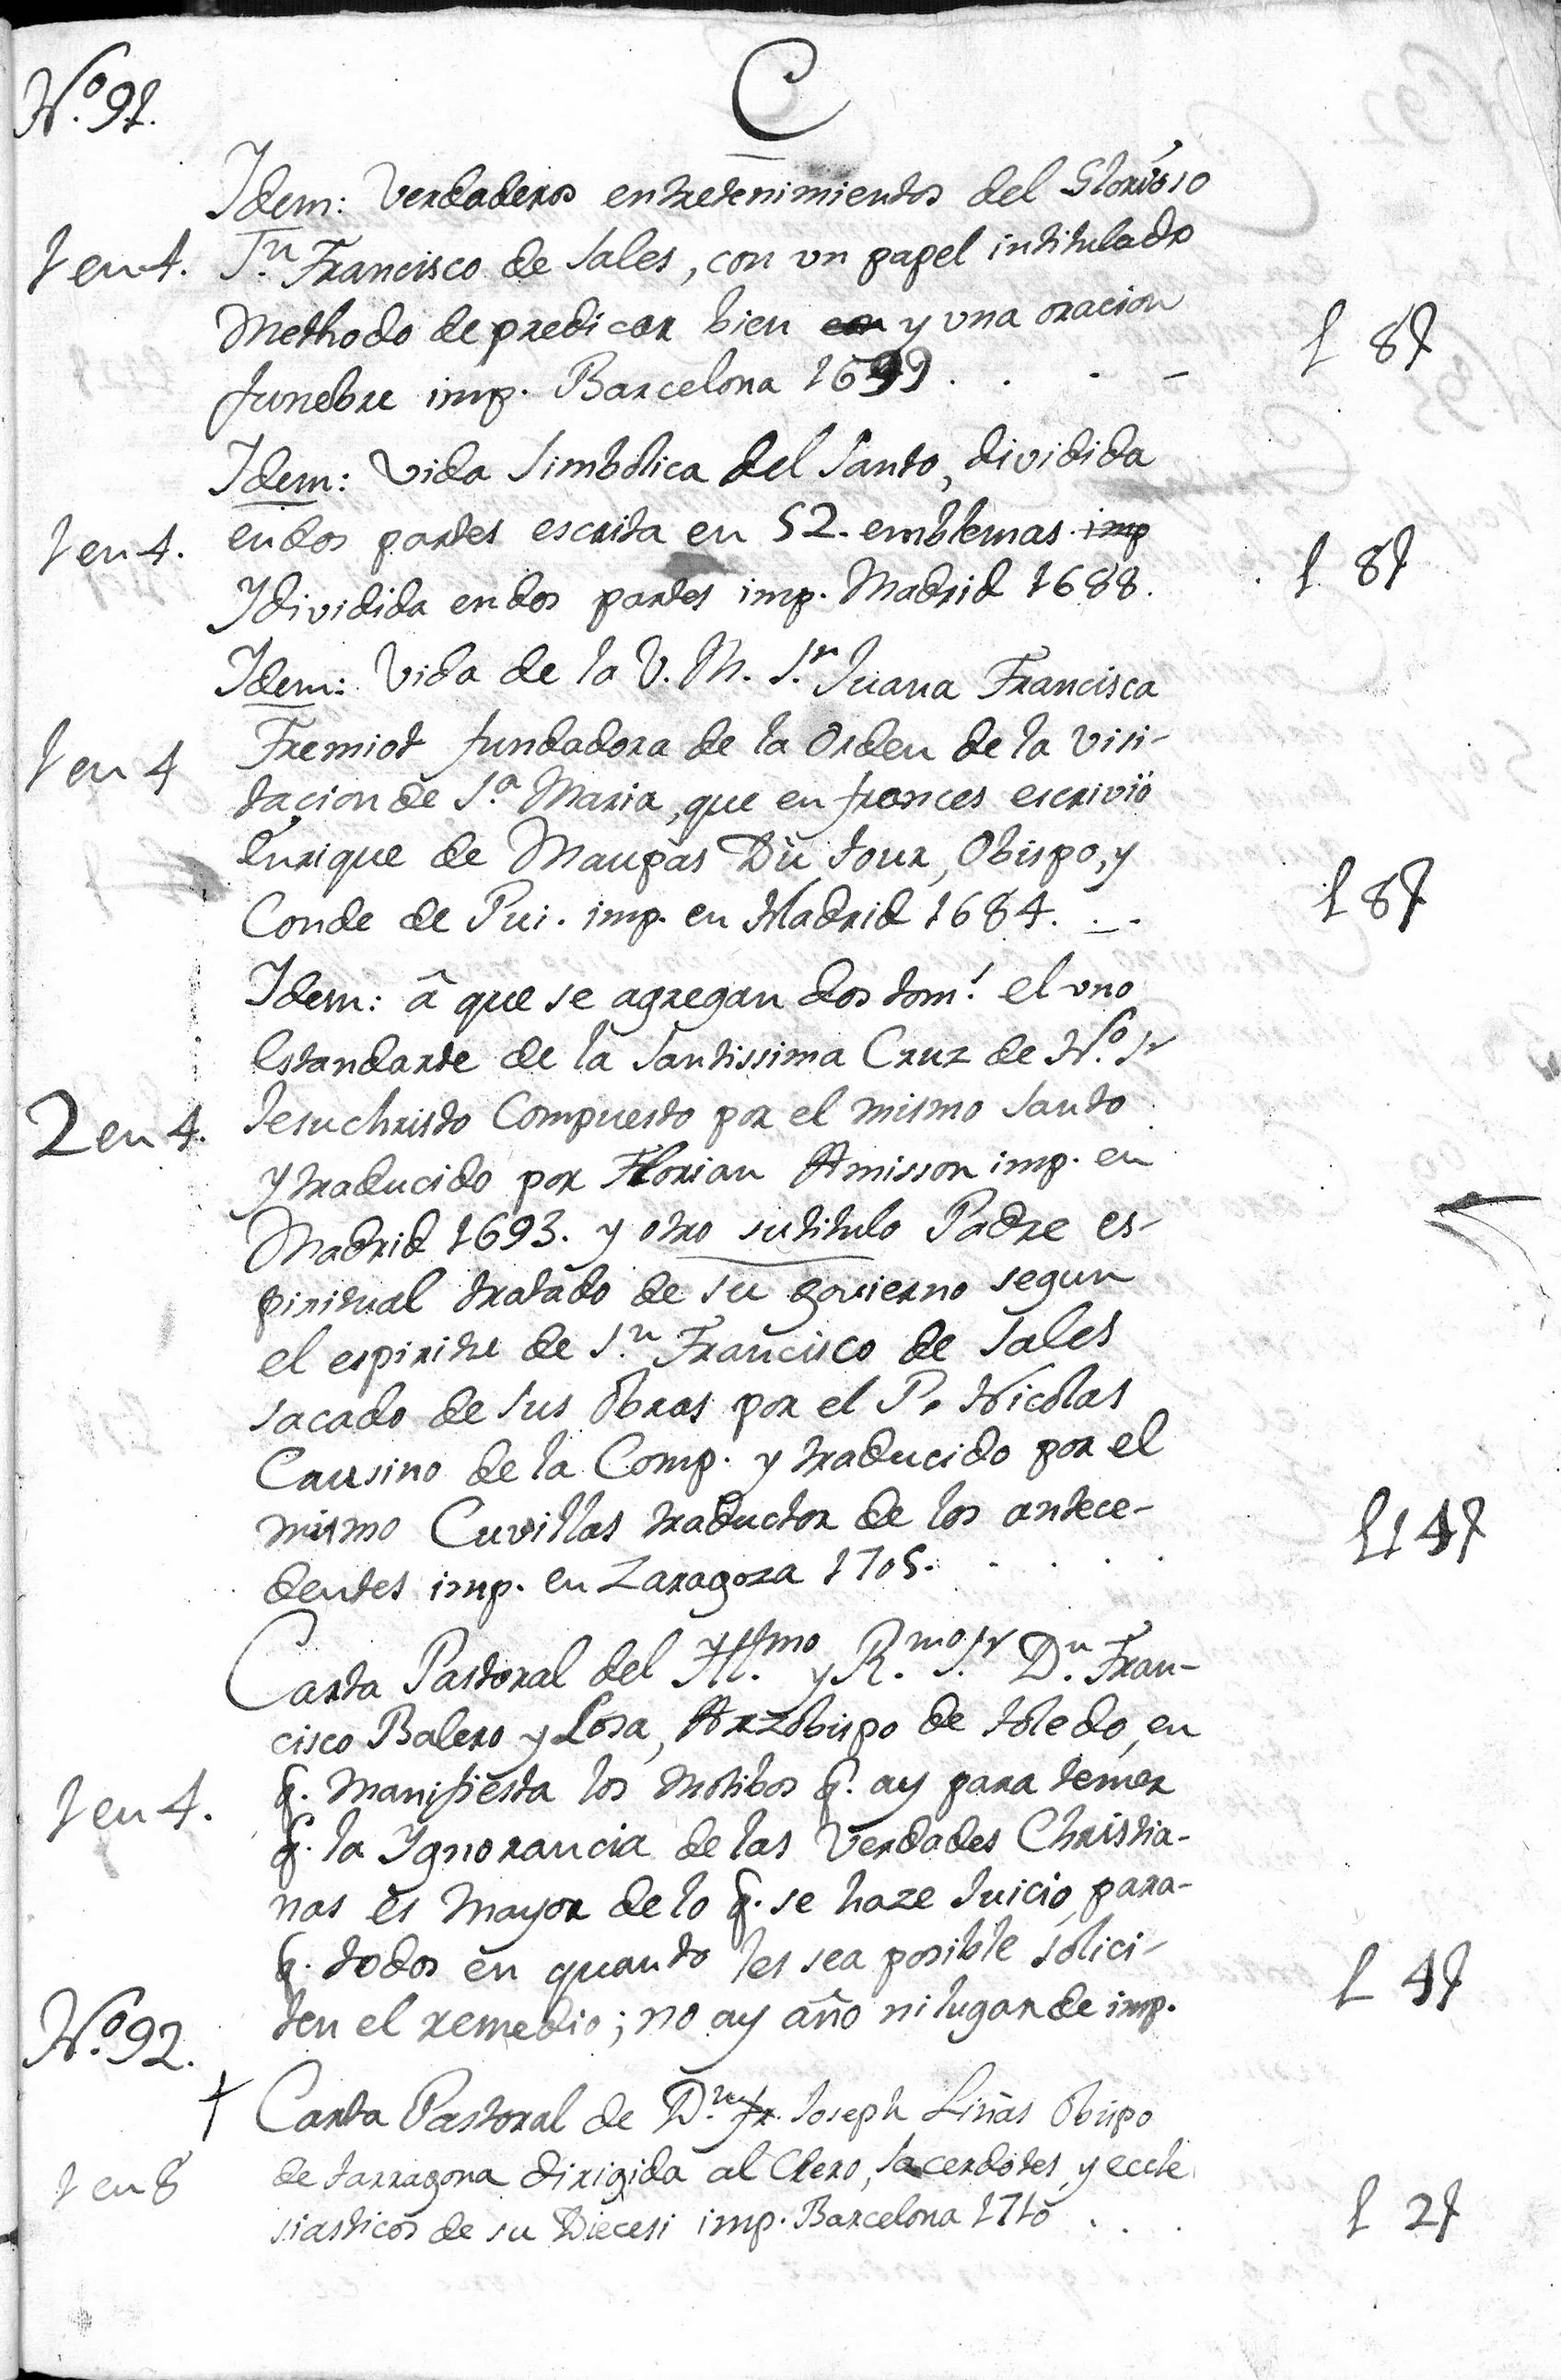 C
Nº. 91.
Idem: Verdaderos entretenimientos del Glorioso
1 en 4. Sn. Francisco de Sales, con vn papel intitulado
Methodo de predicar bien y vna oracion
funebre imp. Barcelona 1699 . . . - 
l 8 l
Idem: Vida Simbolica del Santo, dividida
1 en 4. en dos partes escrita en 52. emblemas. imp
Idividida en dos partes imp. Madrid 1688. l 8 l
Idem: Vida de la V. M. Sr. Juana Francisca
1 en 4 Fremiot fundadora de la Orden de la Visi-
tacion de Sª. Maria, que en frances escrivió
Enrique de Maupas Du tour, Obispo, y
Conde de Pui. imp. en Madrid 1684. . - . l 8 l
Idem: â que se agregan dos tom.s el vno
Estandarte de la Santissima Cruz de Nº. Sr
2 en 4. Jesuchristo Compuesto por el mismo Santo
y traducido por Florian Anisson imp. en
Madrid 1693. y otro su titulo Padre es-
piritual tratado de su govierno segun
el espiritu de Sn. Francisco de Sales
sacado de sus obras por el P. Nicolas
Causino de la Comp. y traducido por el
mismo Cuvillas traductor de los antece-
dentes imp. en Zaragoza 1705. . . . . l 14 l
Carta Pastoral del Illmo. y Rmo. Sr. Dn. Fran-
cisco Balero y Losa, Arzobispo de toledo, en
q. Manifiesta los Motibos q. ay para temer
1 en 4. q. la Ygnorancia de las Verdades Christia-
nas es Mayor de lo q. se haze Juicio, para-
q. todos en quanto les sea posible solici-
ten el remedio; no ay año ni lugar de imp. l 4 l
Nº. 92.
+ Carta Pastoral de Dn. fr. Joseph Liñas Obispo
1 en 8 de tarragona dirigida al Clero, Sacerdotes, y eccle
siasticos de su Diecesi imp. Barcelona 1710 . . . l 2 l